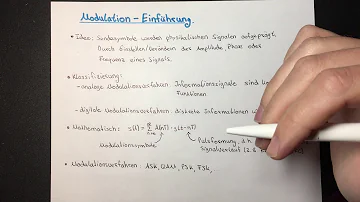 Modulation - Einführung
• Idee: Sendesymbole werden physikalischen Signalen aufgeprägt.
Durch Einstellen/Verändern der Amplitude, Phase oder
Frequenz eines Signals.
• Klassifizierung:
- analoge Modulationsverfahren: Informationssignale sind
Funktionen
- digitale Modulationsverfahren: diskrete Informationen
• Mathematisch: s(t) = Σ A(nT) · g(t-nT)
Modulationssymbole
Pulsformung, d.h.
Signalverlauf (z.B.
• Modulationsverfahren: ASK, QAM, PSK, FSK,